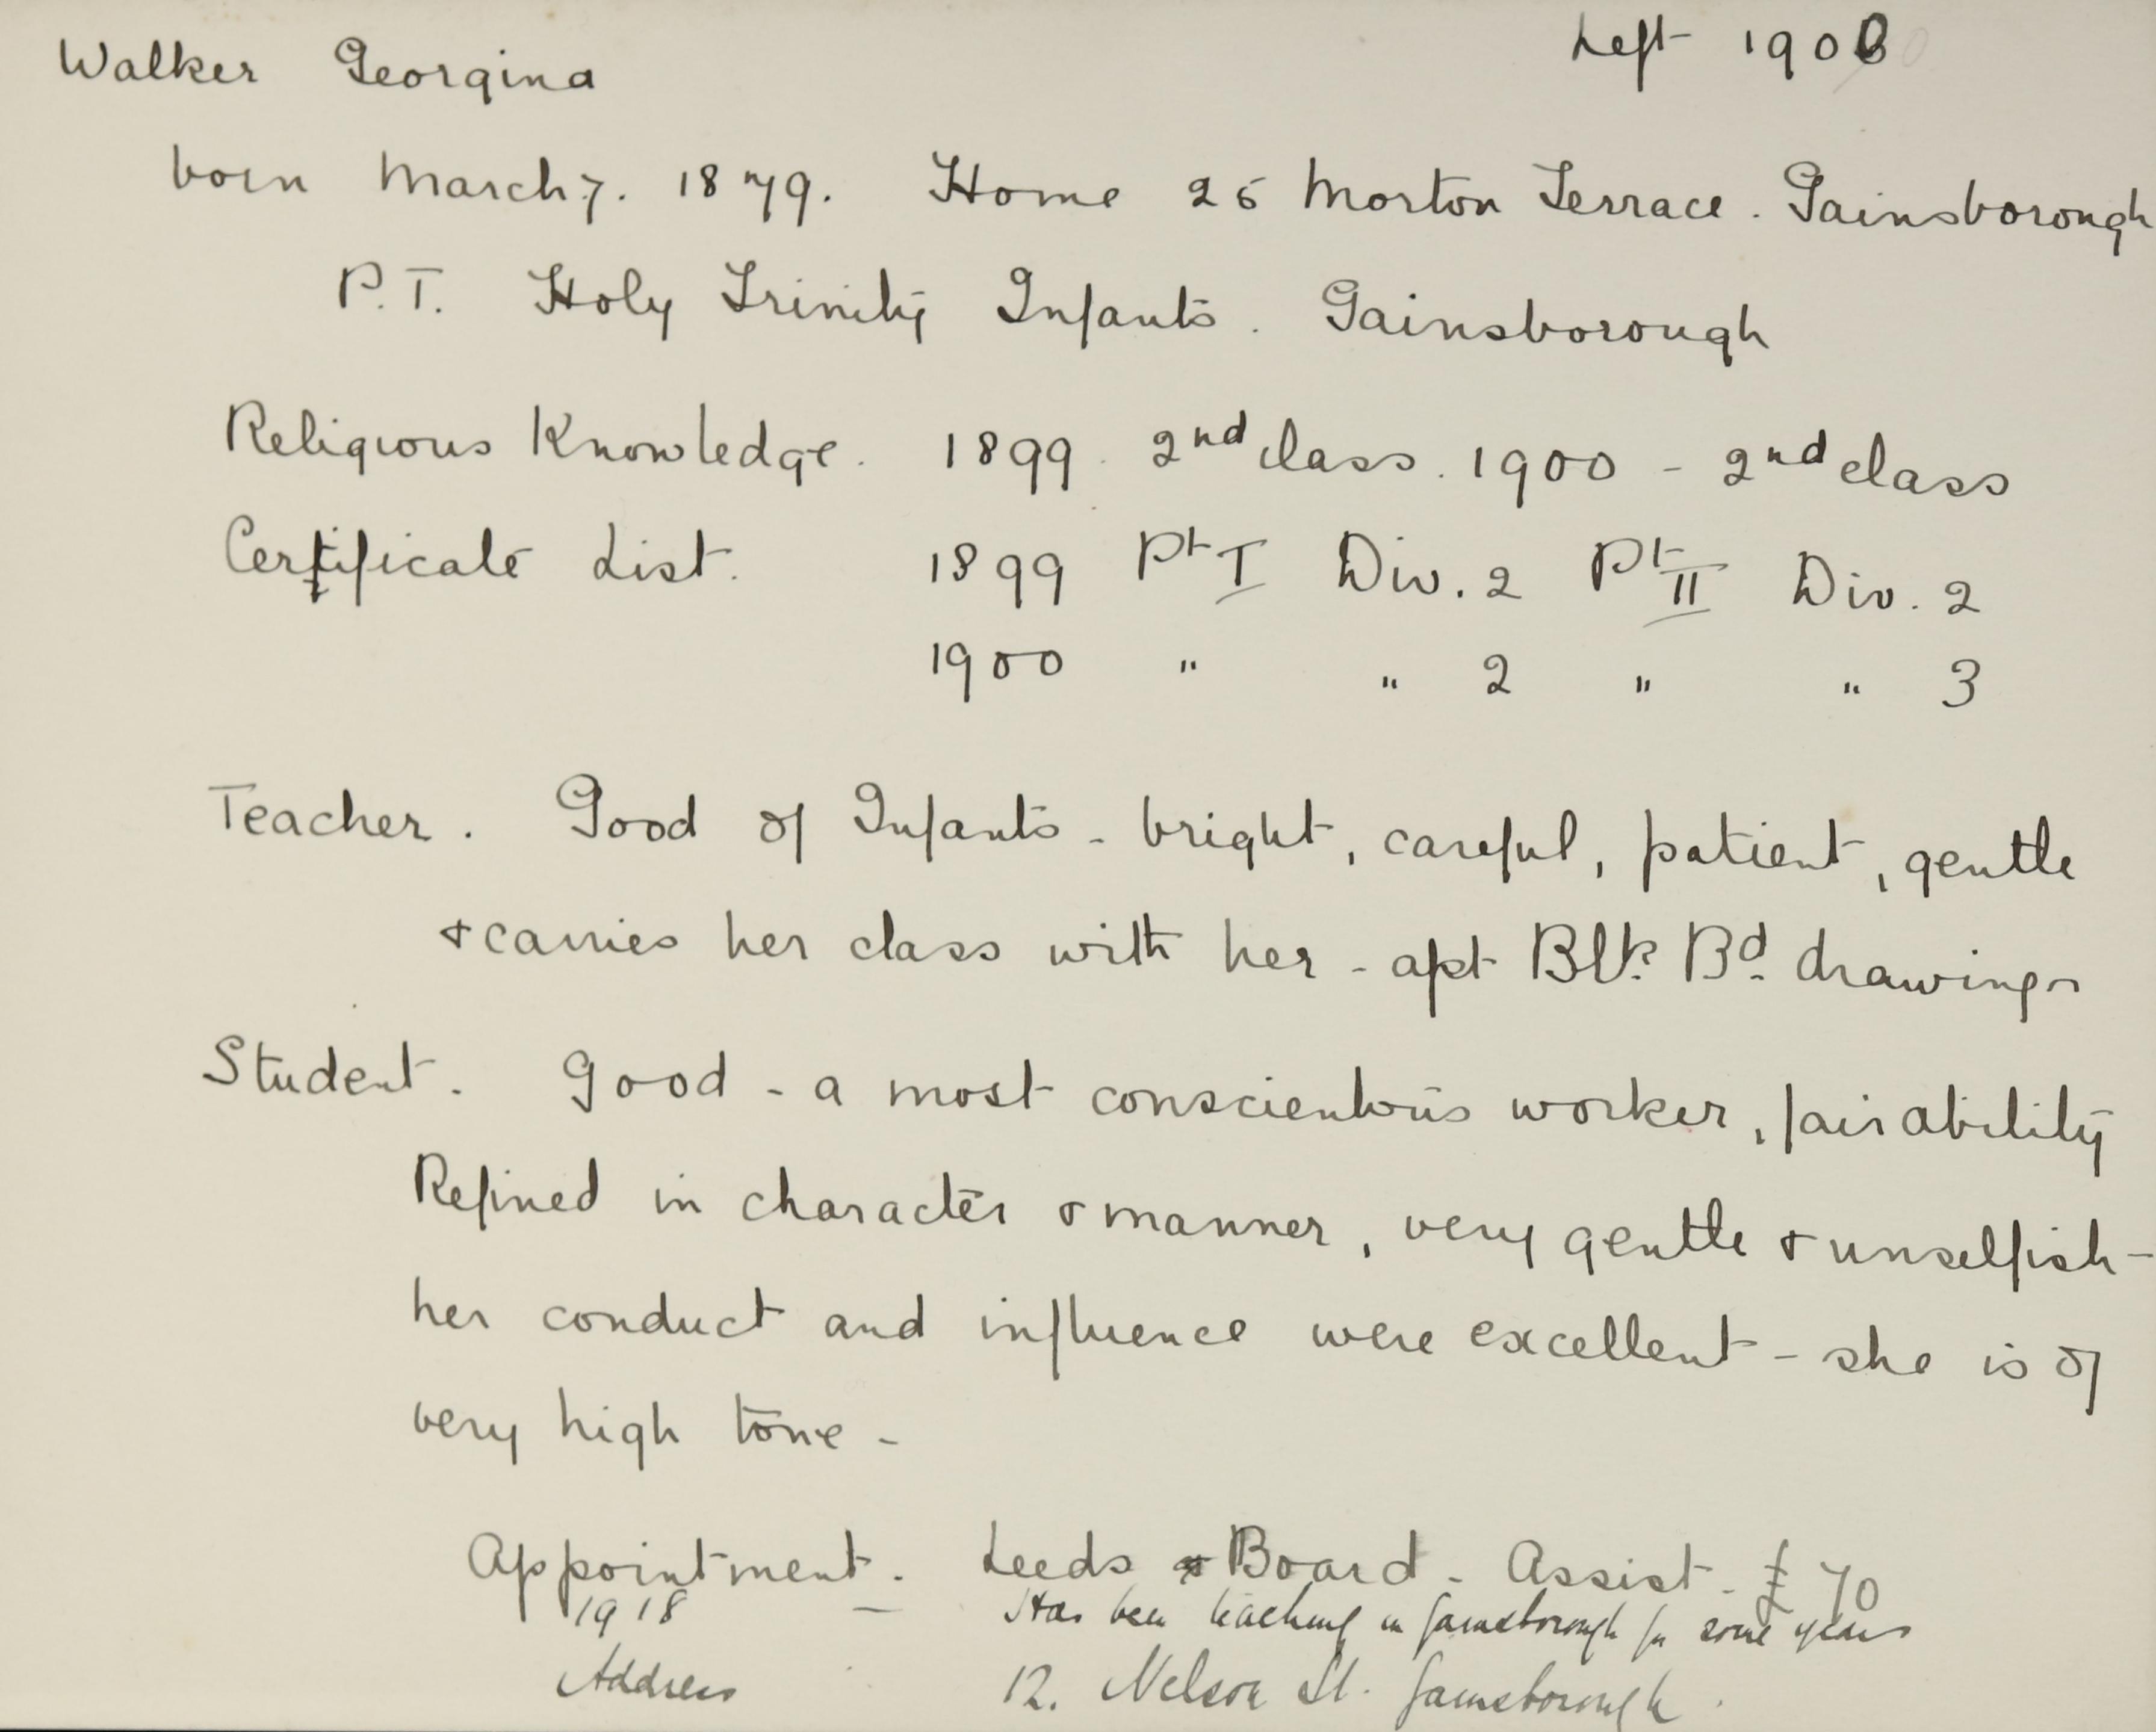 Walker Georgina Left 1900
born March 7. 1879. Home 26 Morton Terrace. Gainsborough
P.T. Holy Trinity Infants. Gainsborough
Religious Knowledge. 1899. 2nd class. 1900 - 2nd class
Certificate List. 1899 Pt I Div. 2 Pt II Div. 2
1900 " " 2 " " 3
Teacher. Good of Infants - bright, careful, patient, gentle
& carries her class with her - apt Blk. Bd. drawings
Student. Good - a most conscientious worker, fair ability
Refined in character & manner, very gentle & unselfish -
her conduct and influence were excellent - she is of
very high tone -
Appointment. Leeds Board - Assist. £70
1918 - Has been teaching in Gainsborough for some years
Address 12. Nelson St. Gainsborough.